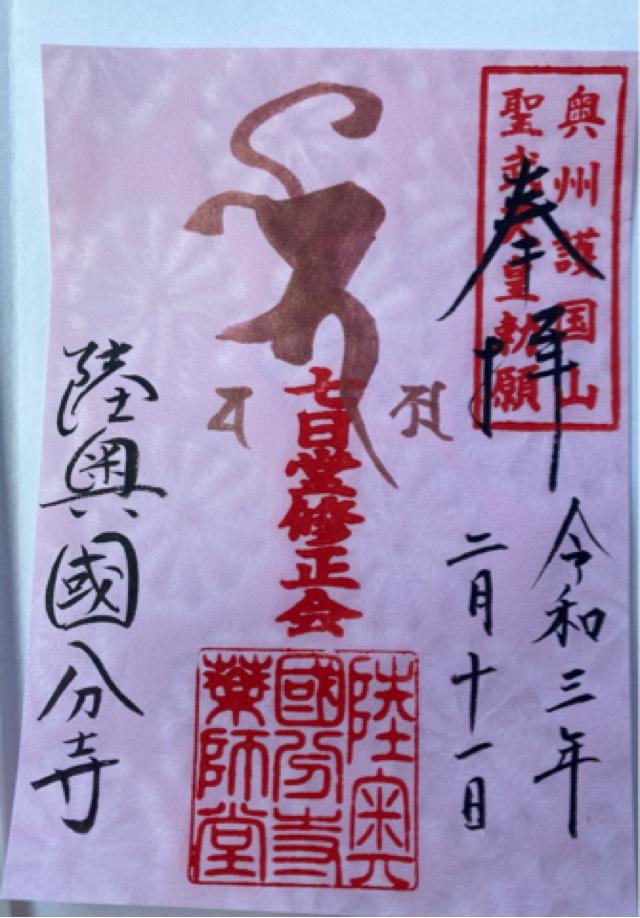 奥州護国山
聖武天皇勅願
奉拝
令和三年
二月十一日
七日堂修正会
陸奥
國分寺
薬師堂
陸奥國分寺